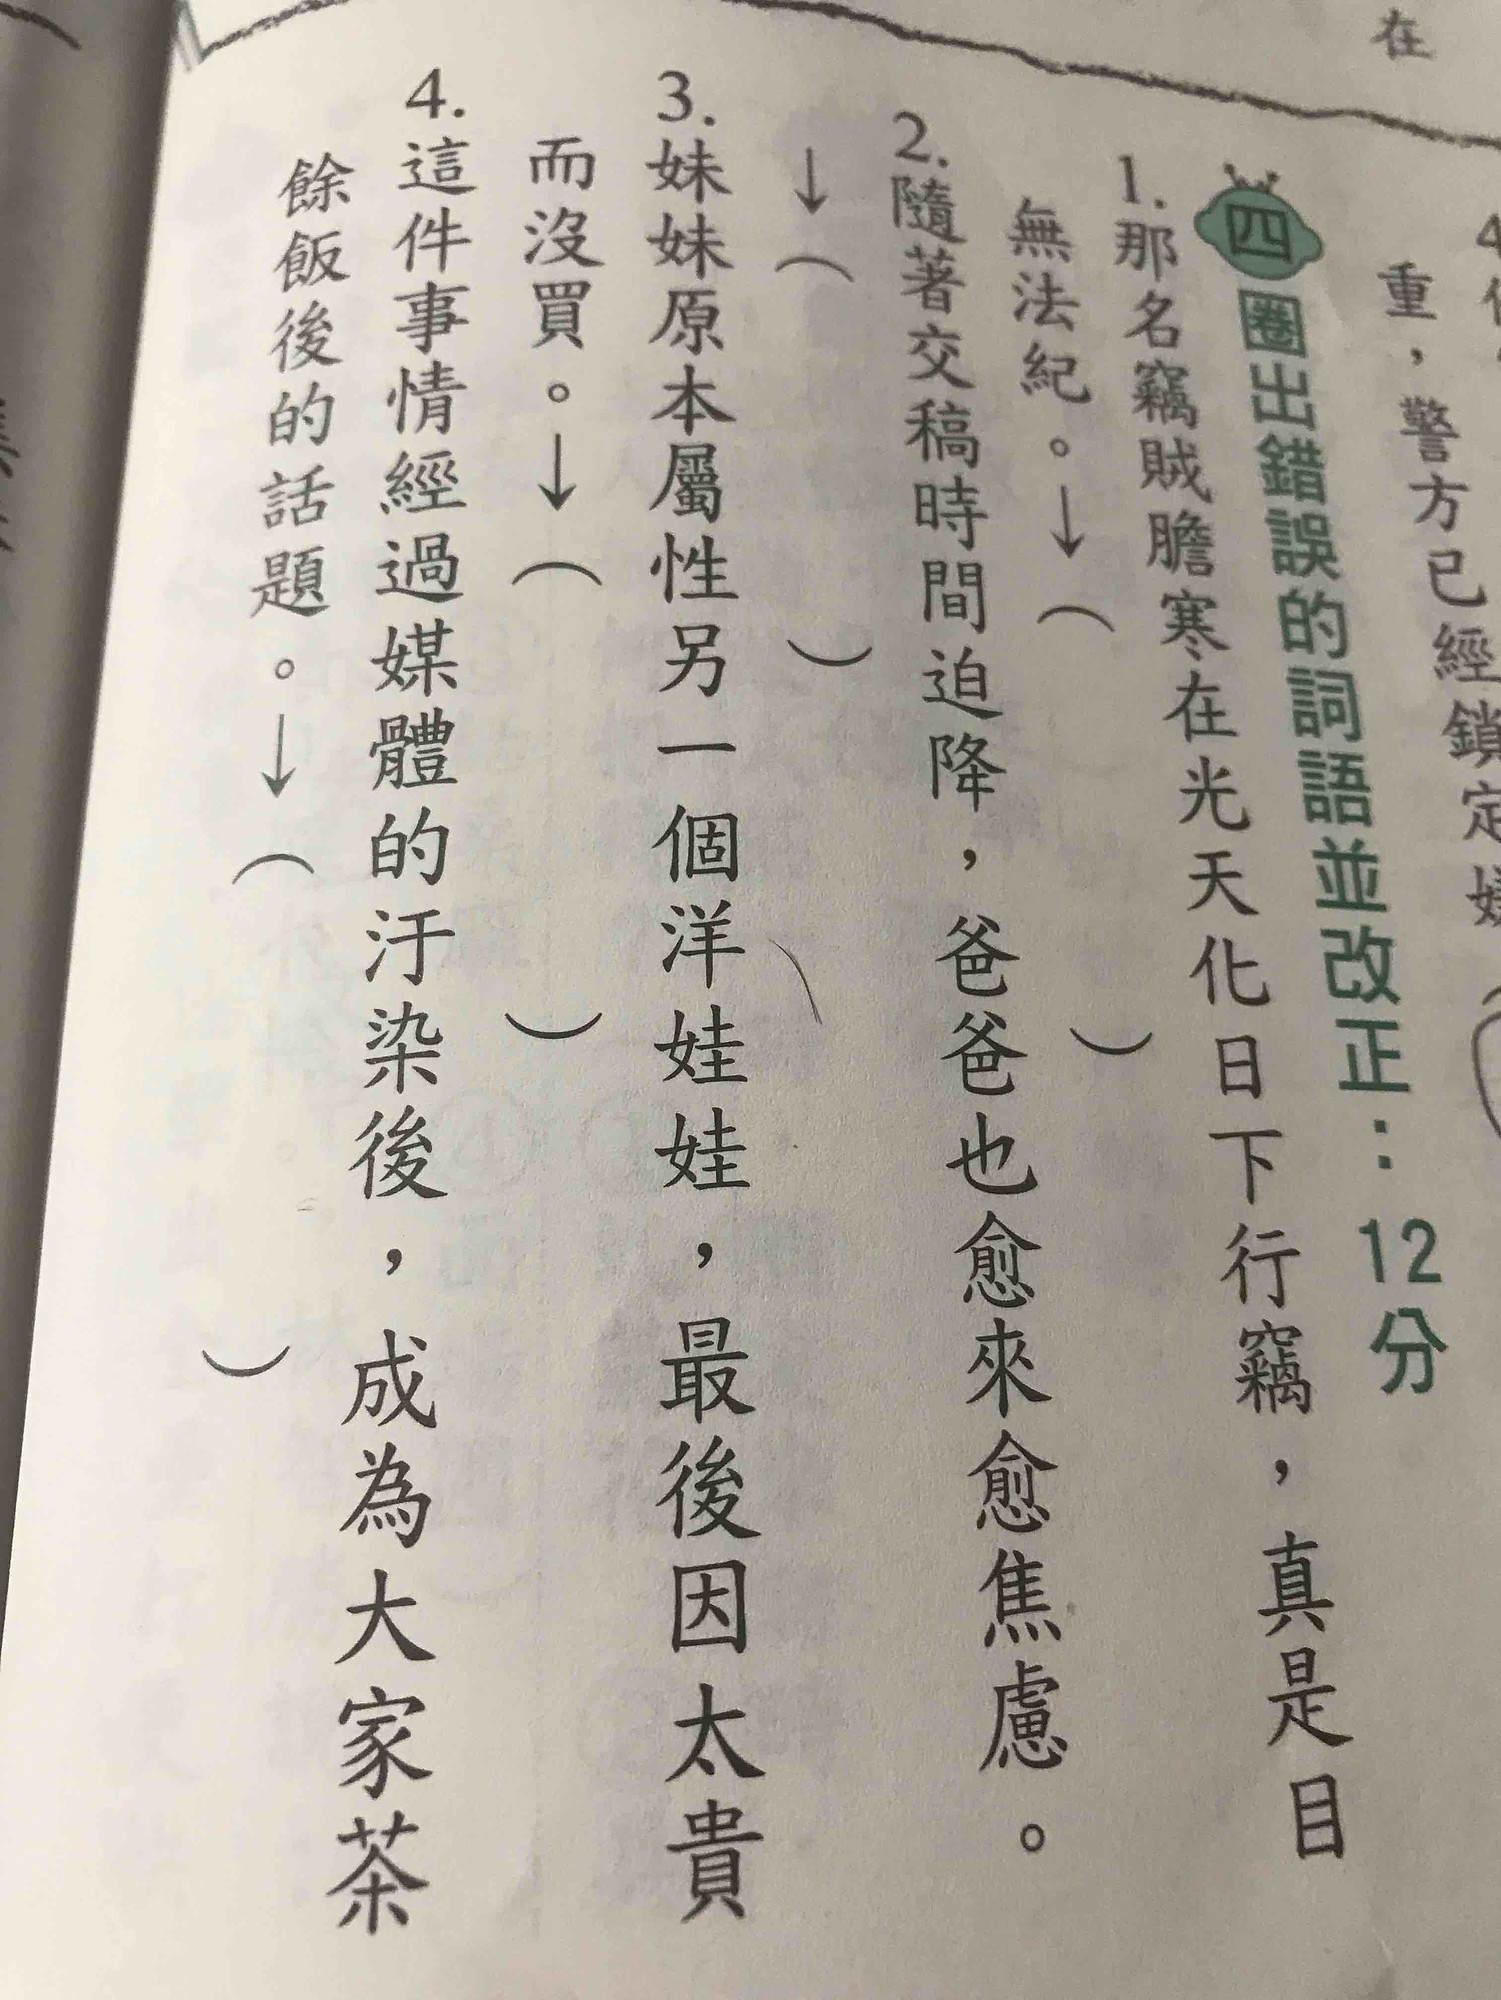 在
4
重，警方已經鎖定
四 圈出錯誤的詞語並改正：12分
1. 那名竊賊膽寒在光天化日下行竊，真是目
無法紀。↓（ ）
2. 隨著交稿時間迫降，爸爸也愈來愈焦慮。
↓（ ）
3. 妹妹原本屬性另一個洋娃娃，最後因太貴
而沒買。↓（ ）
4. 這件事情經過媒體的汙染後，成為大家茶
餘飯後的話題。↓（ ）